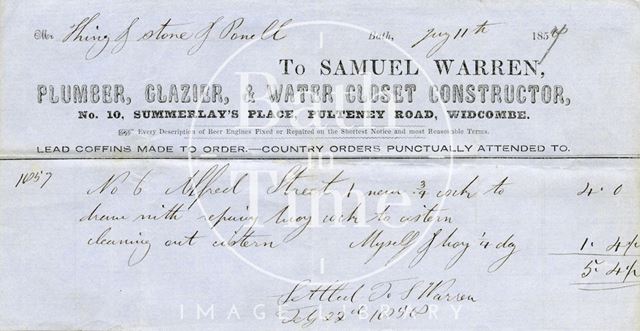 Mr Thing & Stone & Ponell Bath, July 11th 1857
To SAMUEL WARREN,
PLUMBER, GLAZIER, & WATER CLOSET CONSTRUCTOR,
No. 10, SUMMERLAY'S PLACE, PULTENEY ROAD, WIDCOMBE.
Every Description of Beer Engines Fixed or Repaired on the Shortest Notice and most Reasonable Terms.
LEAD COFFINS MADE TO ORDER.—COUNTRY ORDERS PUNCTUALLY ATTENDED TO.
1857 No 6 Alfred Street 1 new ¾ cock to 4. 0
cock to cistern
cleaning out cistern Myself & boy ¼ dy 1. 4½
5. 4½
Settled To S Warren
1858
Bath in Time
IMAGE LIBRARY